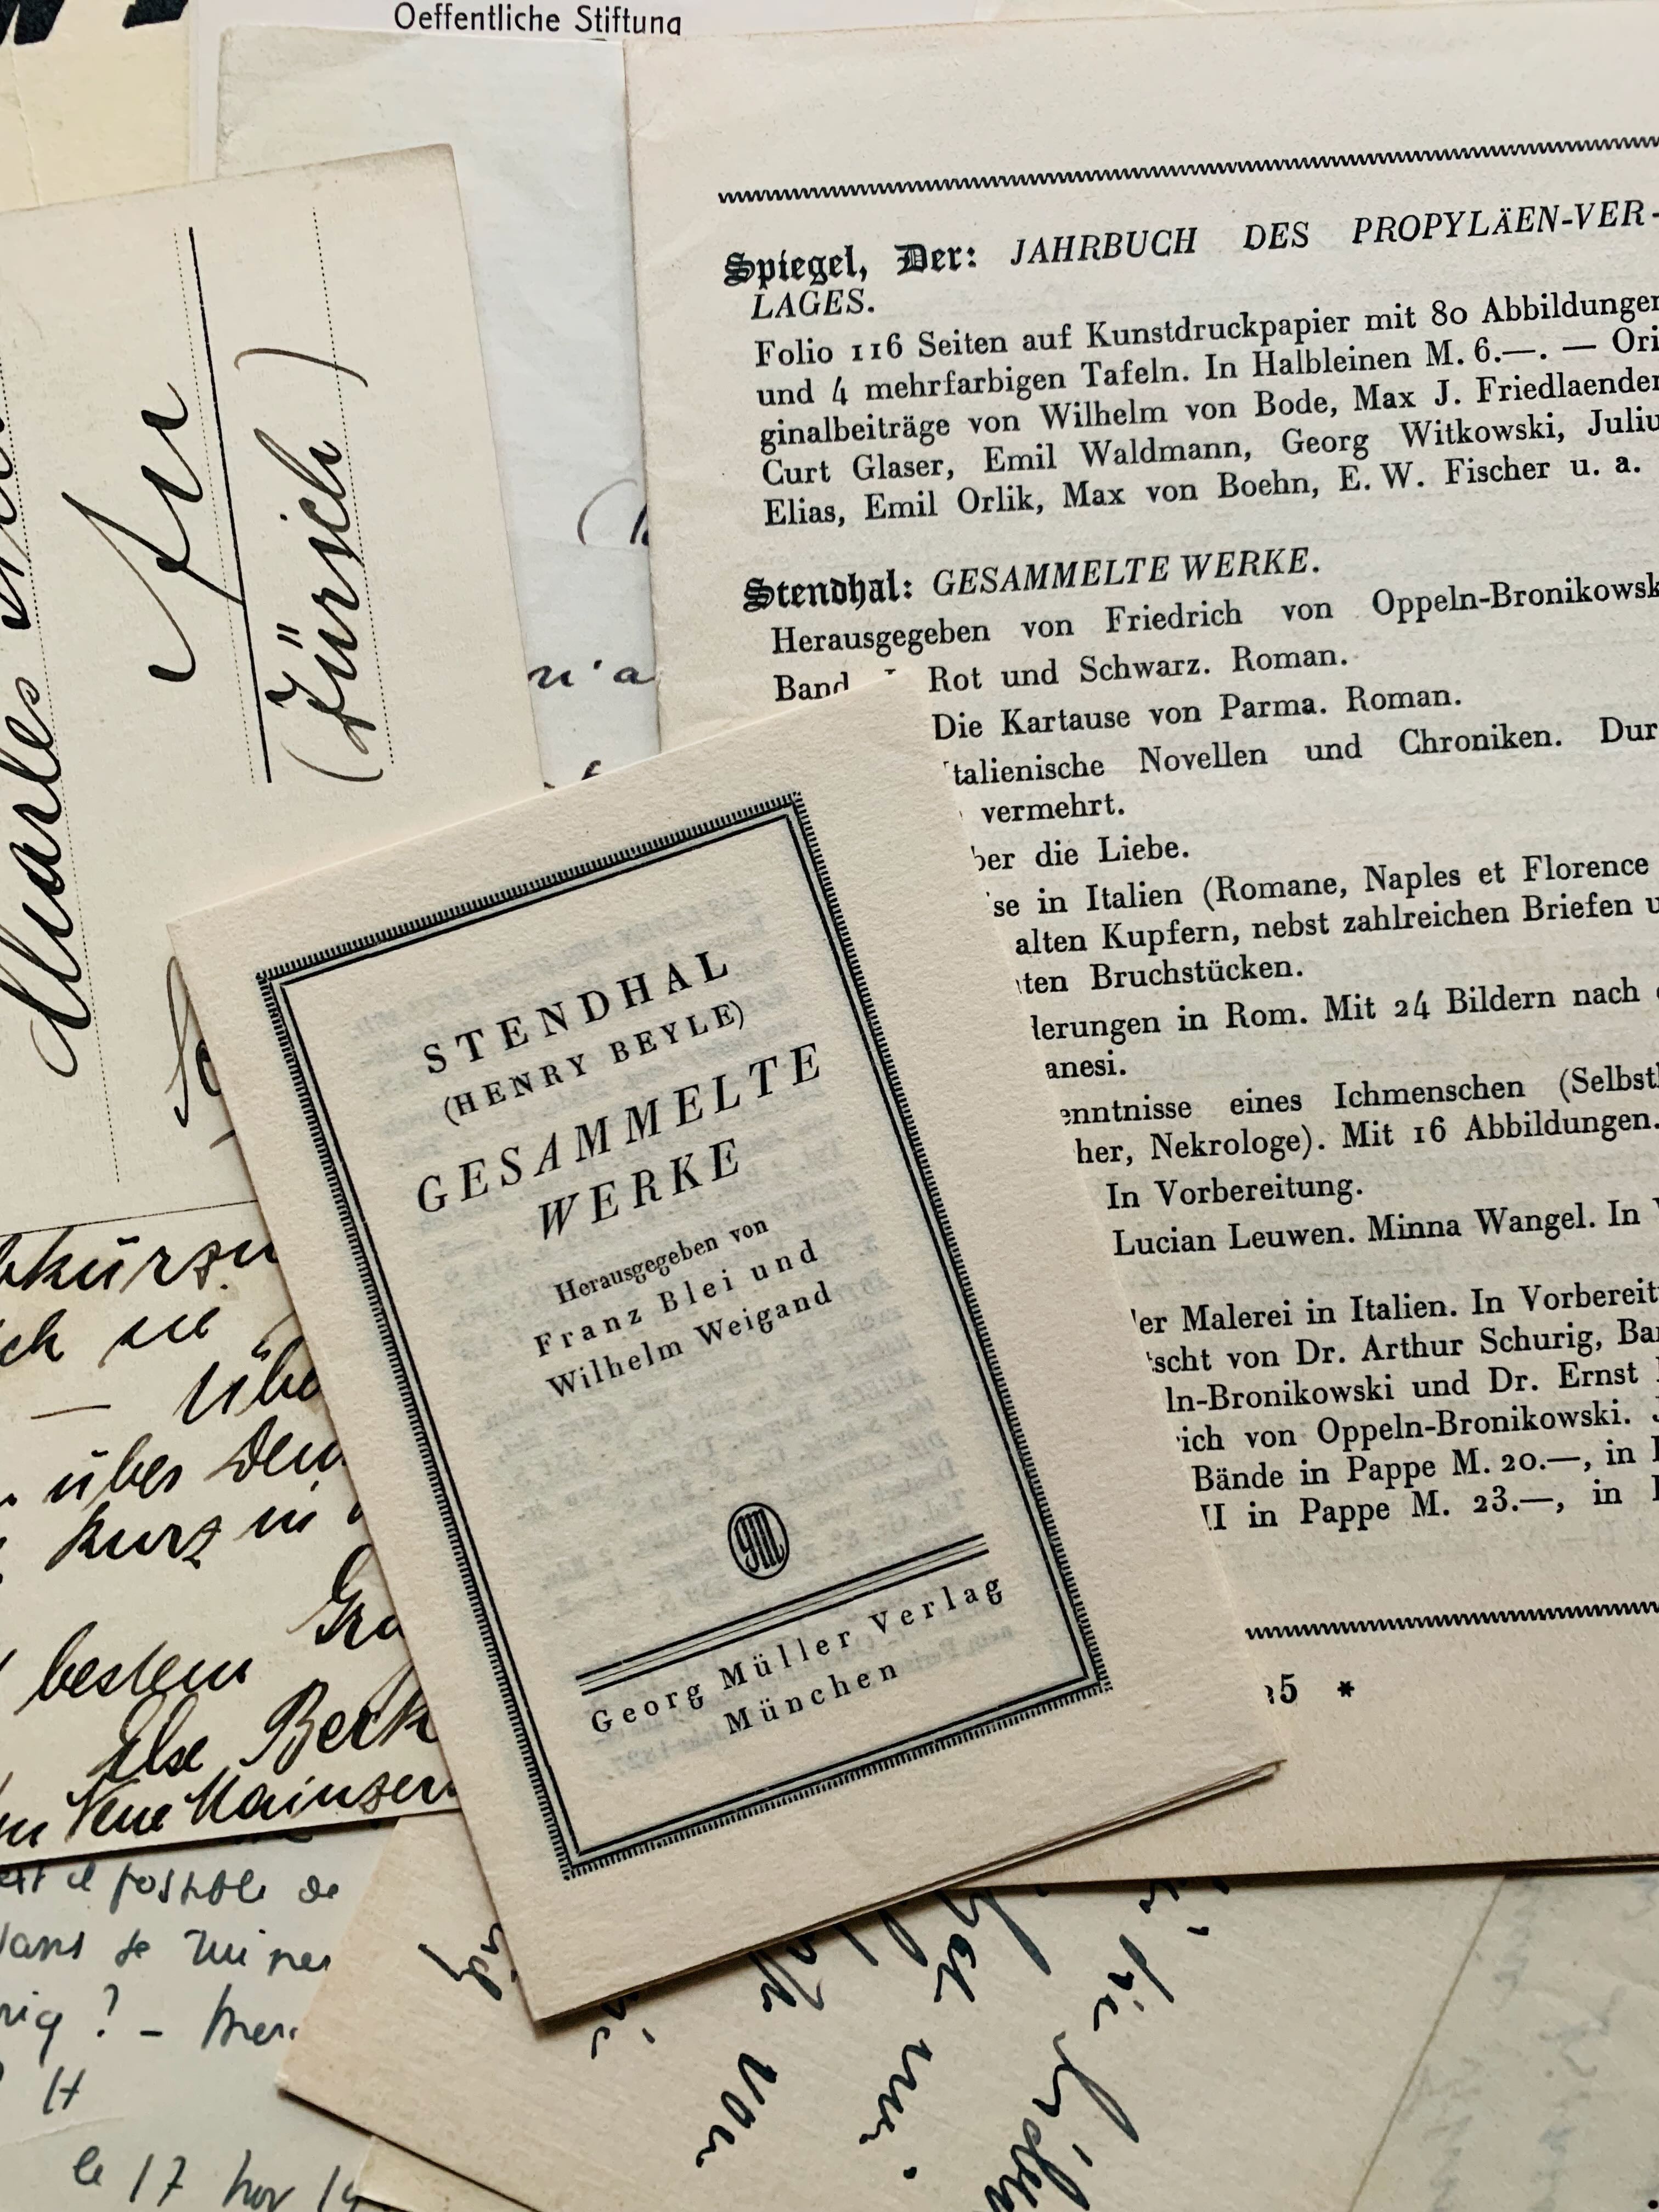 Oeffentliche Stiftung
Spiegel, Der: JAHRBUCH DES PROPYLÄEN-VER-
LAGES.
Folio 116 Seiten auf Kunstdruckpapier mit 80 Abbildungen
und 4 mehrfarbigen Tafeln. In Halbleinen M. 6.—. — Ori
ginalbeiträge von Wilhelm von Bode, Max J. Friedlaender
Curt Glaser, Emil Waldmann, Georg Witkowski, Juliu
Elias, Emil Orlik, Max von Boehn, E. W. Fischer u. a.
Stendhal: GESAMMELTE WERKE.
Herausgegeben von Friedrich von Oppeln-Bronikowsk
Band Rot und Schwarz. Roman.
Die Kartause von Parma. Roman.
talienische Novellen und Chroniken. Dur
vermehrt.
ber die Liebe.
se in Italien (Romane, Naples et Florence
alten Kupfern, nebst zahlreichen Briefen u
ten Bruchstücken.
derungen in Rom. Mit 24 Bildern nach
anesi.
enntnisse eines Ichmenschen (Selbst
her, Nekrologe). Mit 16 Abbildungen.
In Vorbereitung.
Lucian Leuwen. Minna Wangel. In
er Malerei in Italien. In Vorbereit
tscht von Dr. Arthur Schurig, Ba
ln-Bronikowski und Dr. Ernst
ich von Oppeln-Bronikowski.
Bände in Pappe M. 20.—, in
II in Pappe M. 23.—, in
5 *
STENDHAL
(HENRY BEYLE)
GESAMMELTE
WERKE
Herausgegeben von
Franz Blei und
Wilhelm Weigand
GM
Georg Müller Verlag
München
Charles
(Zürich)
n'a
über
kurz in
bestem
Else Beck
Neue Mainzer
est il possible de
dans se
? –
H
le 17 nov 19
von
die